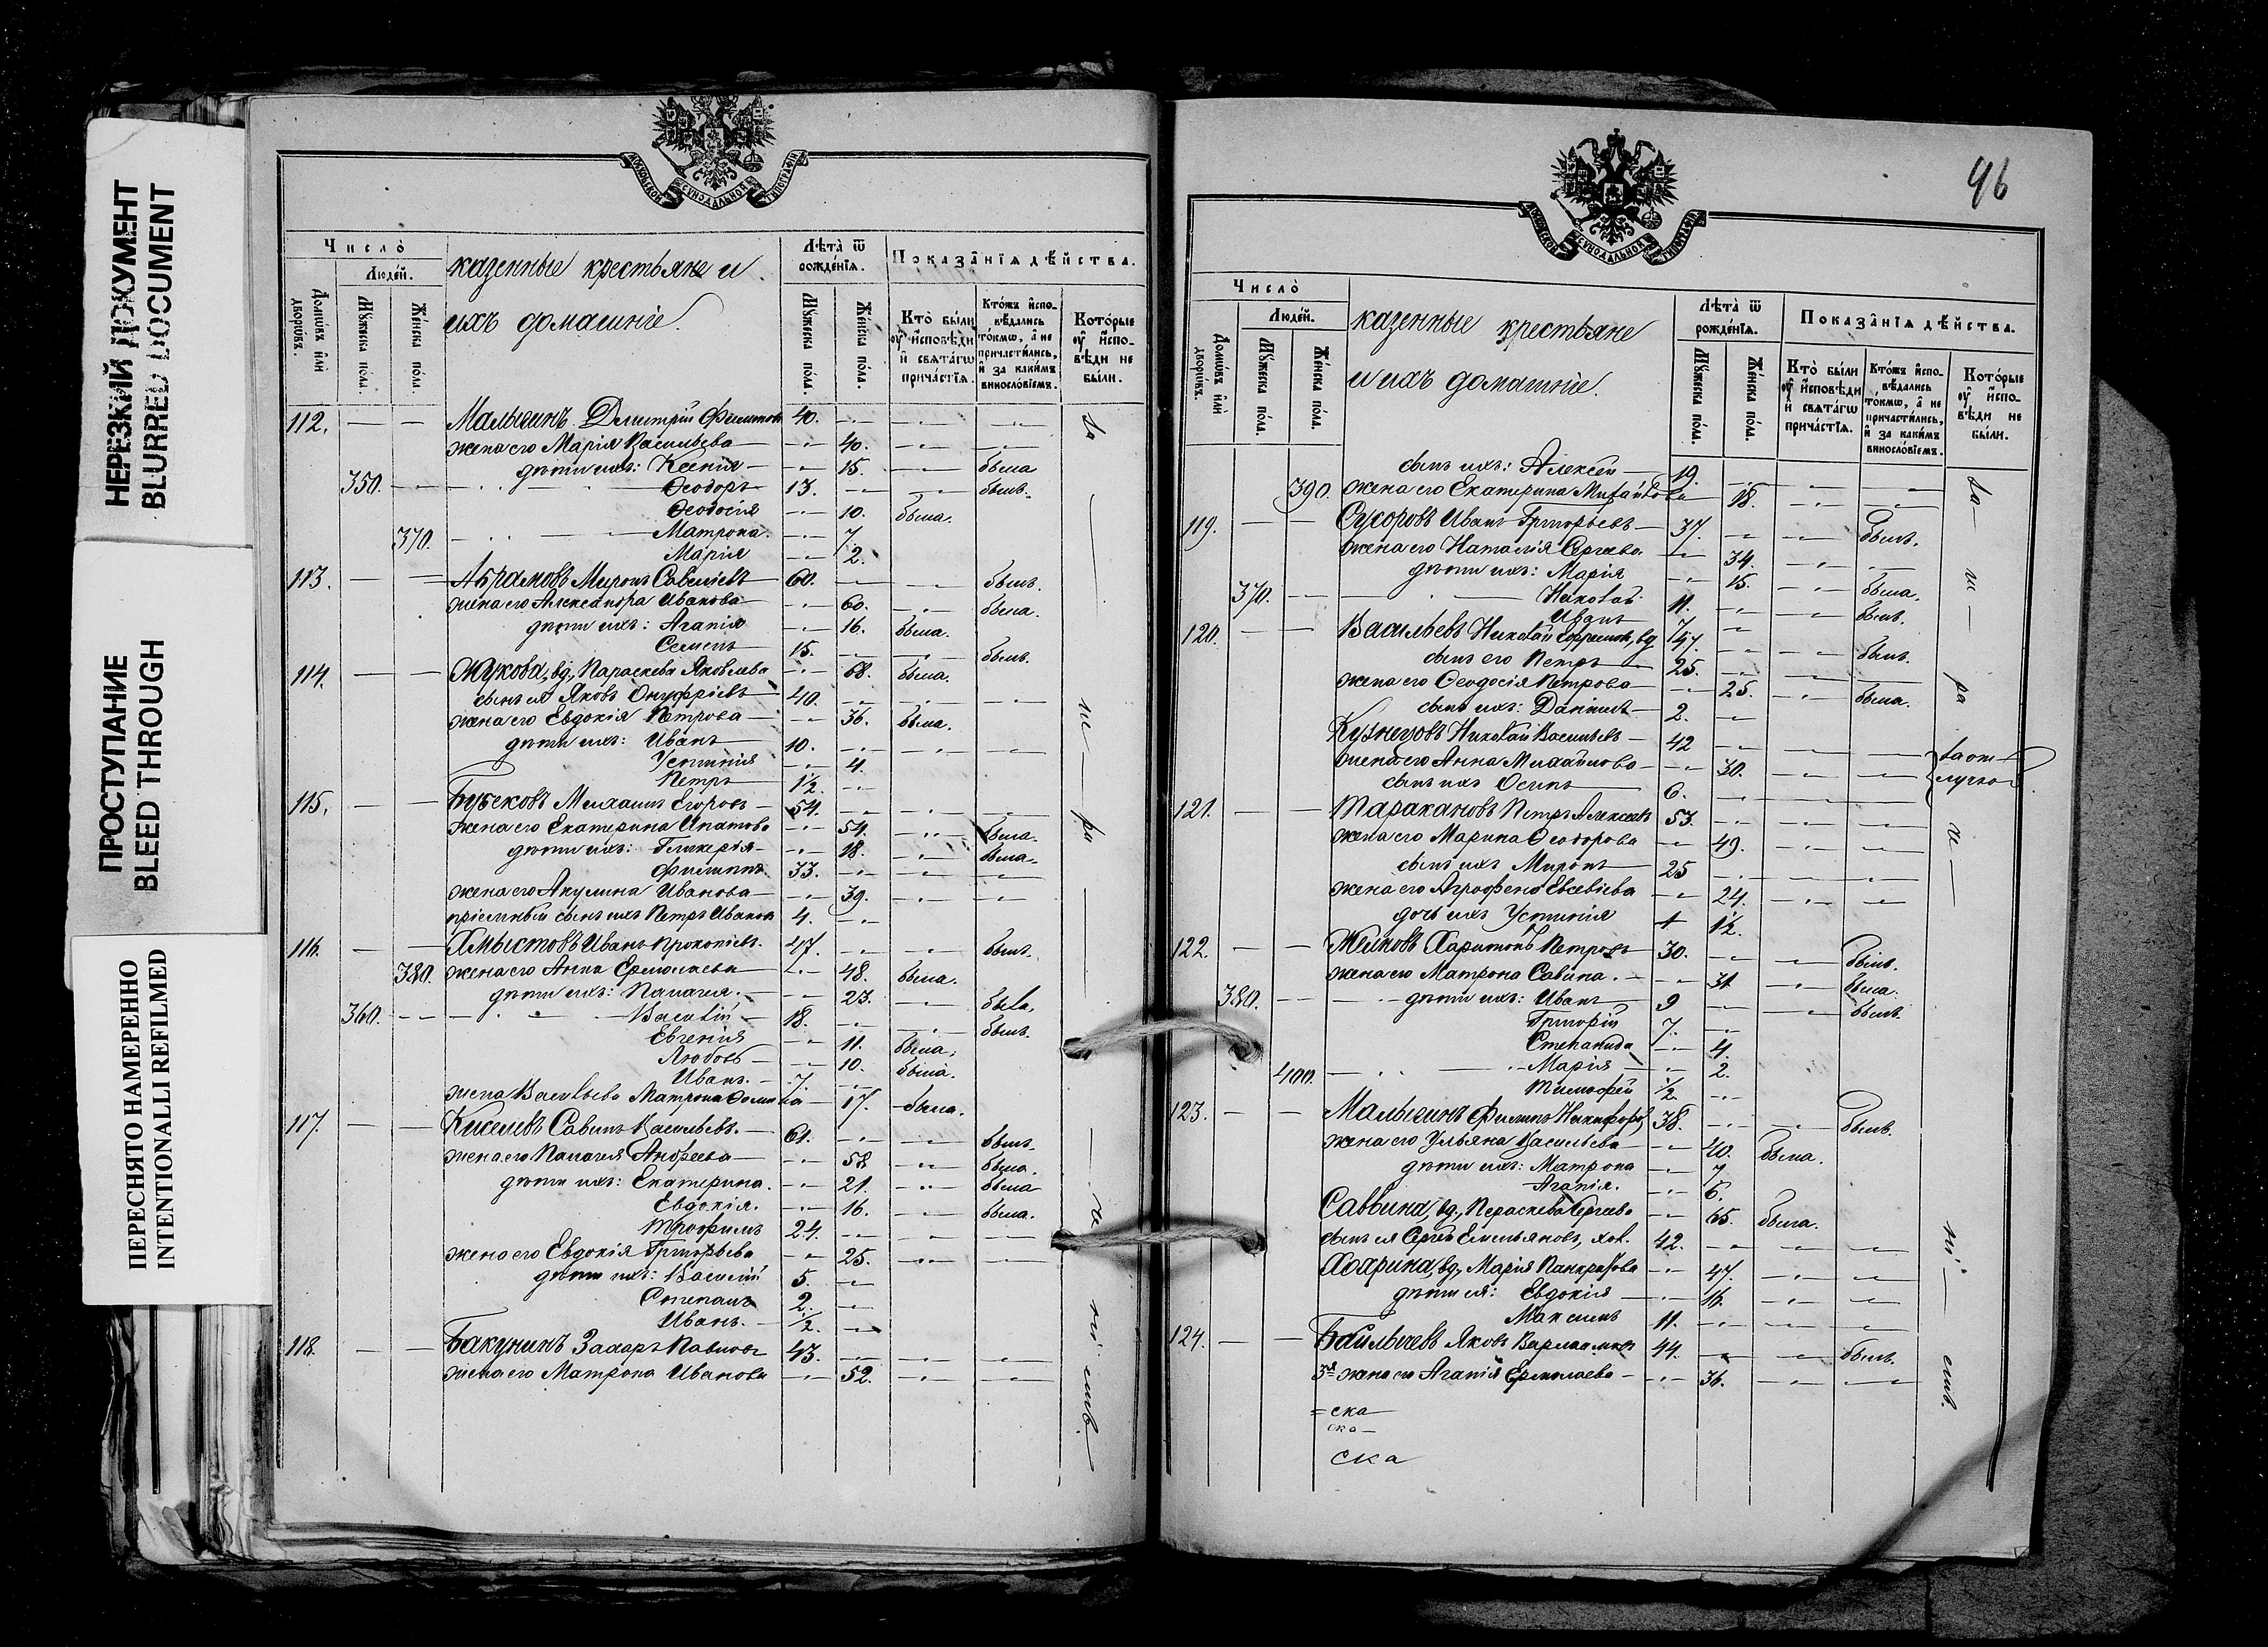 НЕРЕЗКИЙ ДОКУМЕНТ
BLURRED DOCUMENT
ПРОСТУПАНИЕ
BLEED THROUGH
ПЕРЕСНЯТО НАМЕРЕННО
INTENTIONALLI REFILMED
МОСКОВСКОЙ СѴНОДАЛЬНОЙ ТИПОГРАФІИ
Число̀
Людéй.
Домѡ́въ и҆лѝ дворѡ́въ.
Мꙋ́жеска по́ла.
Же́нска по́ла.
казенные крестьяне и
ихъ домашніе.
Лѣта̀ ѿ рожде́нїѧ.
Мꙋ́жеска по́ла.
Же́нска по́ла.
Показа̂нїѧ дѣ́йства.
Кто̀ бы́ли ᲂу҆ и҆сповѣди и҆ свѧта́гѡ прича́стїѧ.
Кто́жъ и҆спо-вѣ́дались то́кмѡ, а҆ не причасти́лись, и҆ за каки́мъ винословїемъ.
Кото́рые ᲂу҆ и҆спо-вѣди не бы́ли.
112. Малыгинъ Дмитрій Филиппов 40.
жена его Марія Васильева 40.
дѣти ихъ: Ксенія 15. была
350. Ѳеодоръ 13. былъ.
Ѳеодосія 10. была.
370. Матрона. 7.
Марія 2.
113. Абрамовъ Миронъ Савеліевъ 60. былъ.
жена его Александра Иванова 60. была.
дѣти ихъ: Агапія 16. была.
Семенъ 15. былъ.
114. Жукова, вд. Параскева Яковлева 68. была.
сынъ ея Яковъ Онуфріевъ 40.
жена его Евдокія Петрова 36. была.
дѣти ихъ: Иванъ 10.
Устинія 4.
Петръ 1½
115. Михаилъ Егоровъ 54.
жена его Екатерина Ипатова 54. была.
дѣти ихъ: Гликерія 18. была.
Филиппъ 33.
жена его Акулина Иванова 39.
пріемный сынъ ихъ Петръ Иванов 4.
116. Хлыстовъ Иванъ Прокопіевъ. 47. былъ.
380. жена его Анна Ермолаева 48. была.
дѣти ихъ: Пелагея. 23. была.
360. Василій 18. былъ.
Евгенія 11. была.
Любовь 10. была.
Иванъ. 7.
жена Васильева Матрона 17. была.
117. Киселевъ Савинъ Васильевъ. 61. былъ.
жена его Пелагея Андреева 58 была.
дѣти ихъ: Екатерина. 21. была
Евдокія. 16. была.
Трофимъ 24.
жена его Евдокія Григорьева 25.
дѣти ихъ: Василій 5.
Степанъ 2.
Иванъ. ½.
118. Бакунинъ Захаръ Павловъ 43.
жена его Матрона Иванова 52.
96
МОСКОВСКОЙ СѴНОДАЛЬНОЙ ТИПОГРАФІИ
Число̀
Людéй.
Домѡ́въ и҆лѝ дворѡ́въ.
Мꙋ́жеска по́ла.
Же́нска по́ла.
казенные крестьяне
и ихъ домашніе.
Лѣта̀ ѿ рожде́нїѧ.
Мꙋ́жеска по́ла.
Же́нска по́ла.
Показа̂нїѧ дѣ́йства.
Кто̀ бы́ли ᲂу҆ и҆сповѣди и҆ свѧта́гѡ прича́стїѧ.
Кто́жъ и҆спо-вѣ́дались то́кмѡ, а҆ не причасти́лись, и҆ за каки́мъ винословїемъ.
Кото́рые ᲂу҆ и҆спо-вѣди не бы́ли.
сынъ ихъ: Алексѣй 19.
390. жена его Екатерина Михайлова 18.
119. Сухоровъ Иванъ Григорьевъ 37. былъ.
жена его Наталія Сергѣева 34.
дѣти ихъ: Марія 15. была.
370. Николай 11. былъ.
Иванъ 7
120. Васильевъ Николай Ефремов, вд 47. былъ.
сынъ его Петръ 25.
жена его Ѳеодосія Петрова 25. была.
сынъ ихъ: Даніилъ 2.
Кузнецовъ Николай Васильевъ 42
жена его Анна Михайлова 30. въ от-
сынъ ихъ Осипъ 6. лучкѣ.
121. Таракановъ Петръ Алексѣевъ 53.
жена его Марина Ѳеодорова 49.
сынъ ихъ Миронъ 25
жена его Агрофена Евсевіева 24.
дочь ихъ Устинія 1½.
122. Харитонъ Петровъ 30. былъ.
жена его Матрона Савина. 31 была.
380. дѣти ихъ: Иванъ 9 былъ.
Григорій 7.
Степанида 4.
400. Марія 2.
Тимофей ½
123. Малыгинъ Филиппъ Никифоров 38. былъ.
жена его Ульяна Васильева 40. была.
дѣти ихъ: Матрона 7
Агапія. 6.
Саввина, вд., Пераскева Сергѣева 65. была.
сынъ ея Сергѣй Емельяновъ, хол. 42.
вд. Марія Панкратова 47.
дѣти ея: Евдокія 16.
Максимъ 11.
124. Яковъ Варлаамовъ 44. былъ.
3я жена его Агапія Ермолаева 36.
= ска
ска
ска